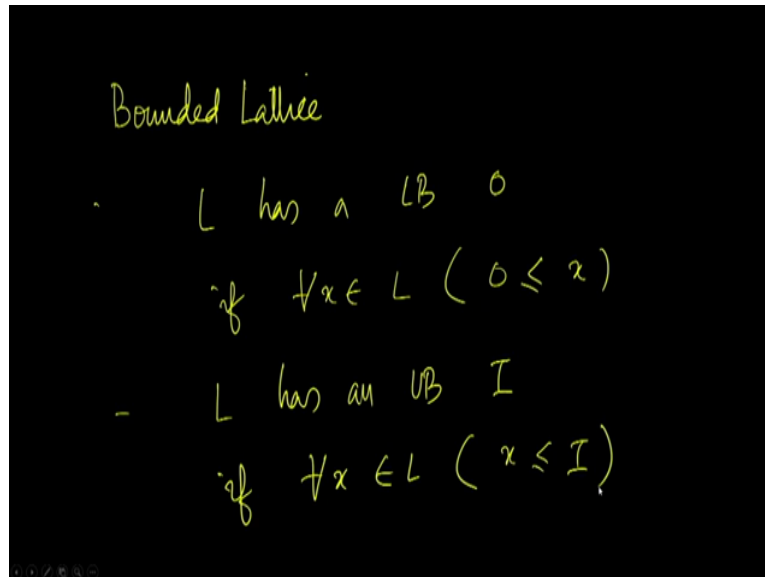 Bounded Lattice
· L has a LB 0
if ∀x ∈ L ( 0 ≤ x )
- L has an UB I
if ∀x ∈ L ( x ≤ I )